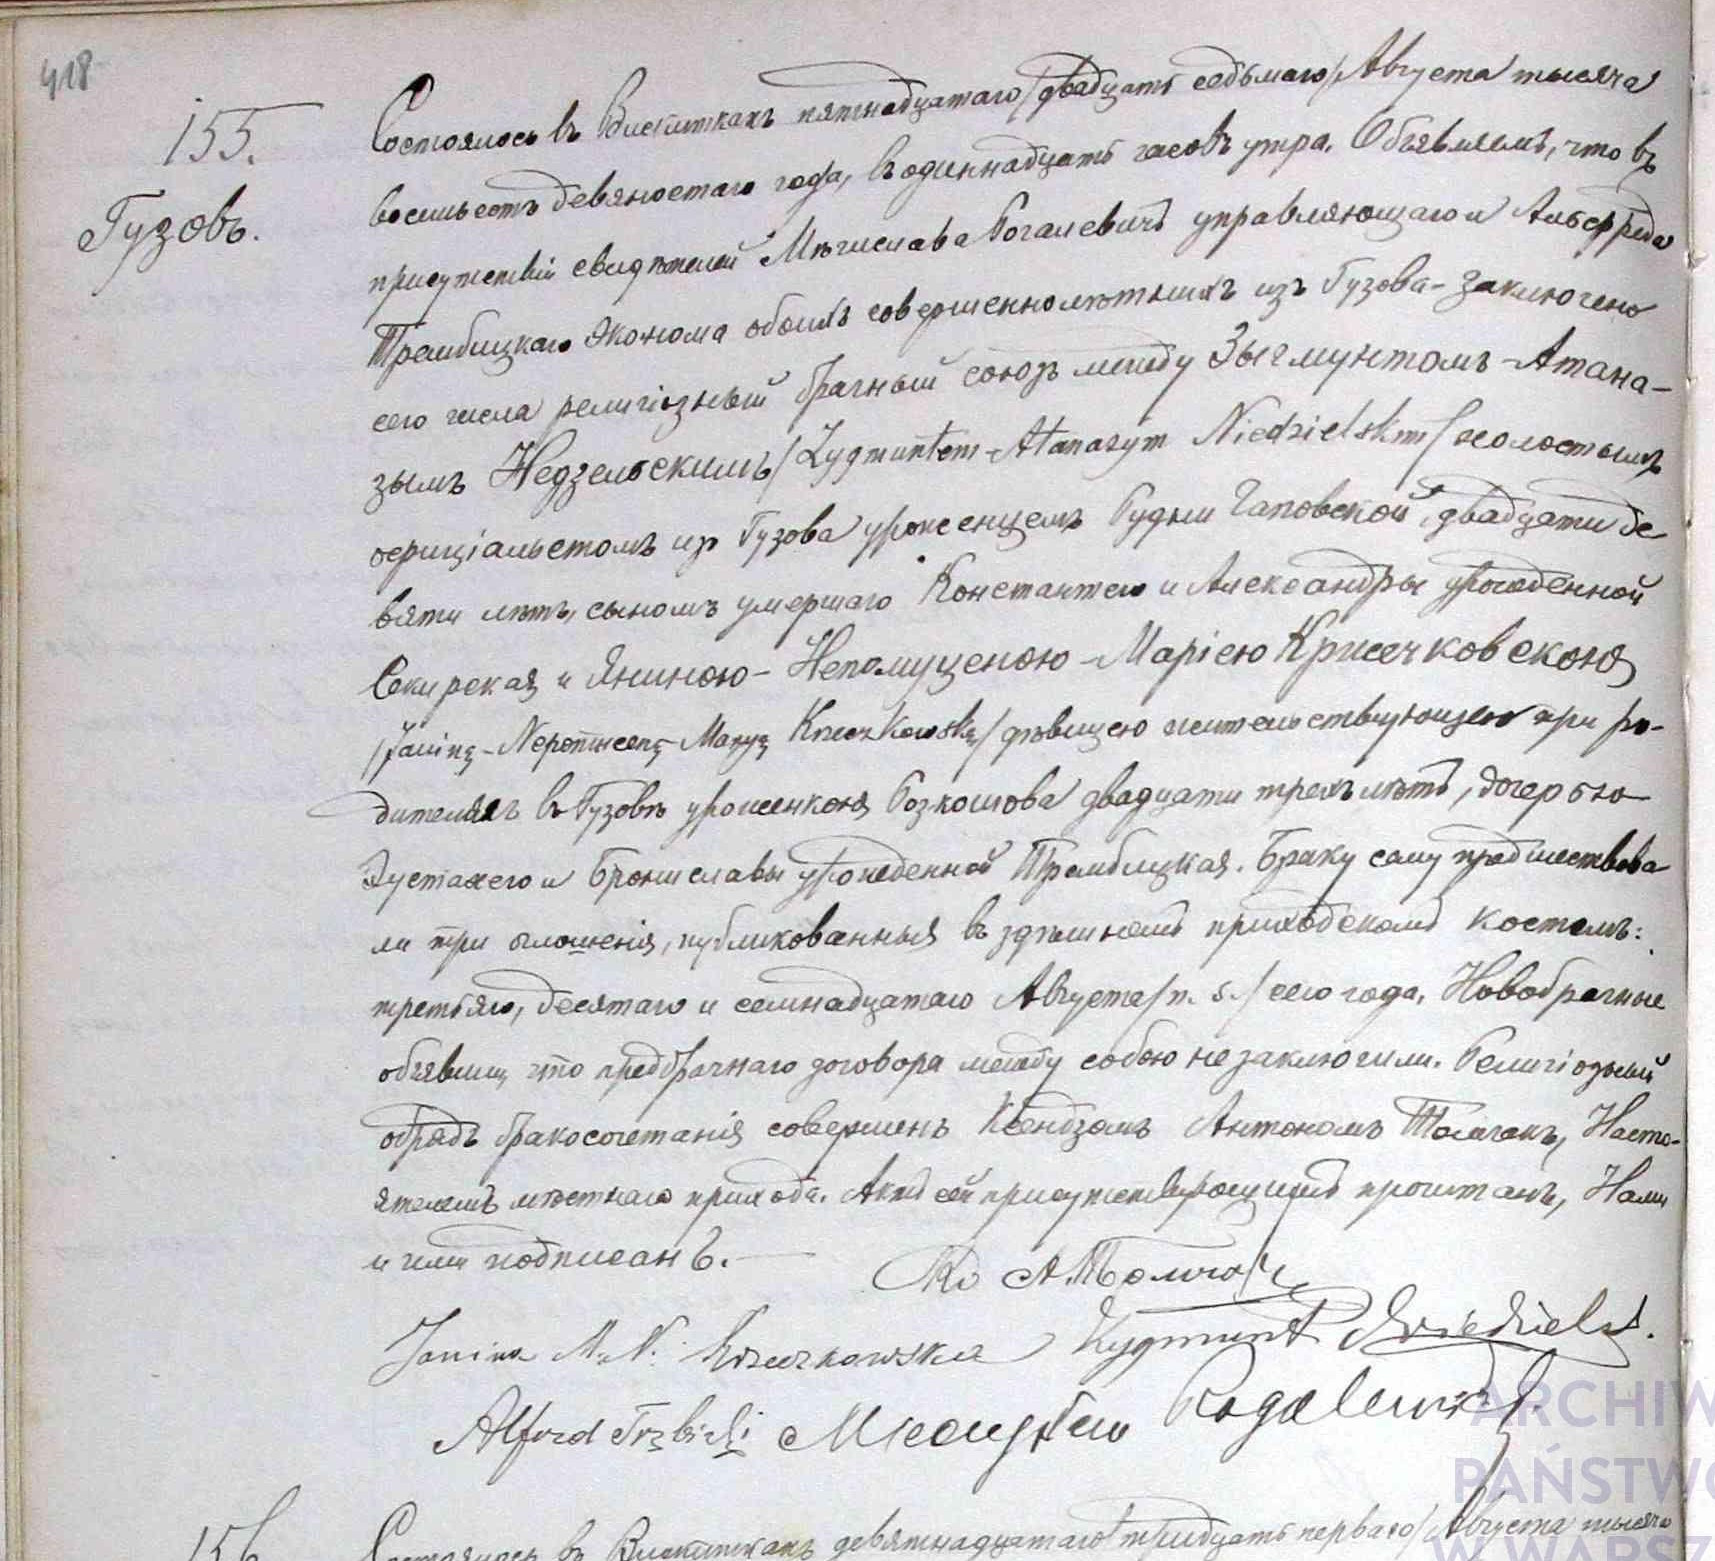 418
155.
Гузовъ.
Состоялось въ Вискиткахъ пятнадцатаго /двадцать седьмаго/ Августа тысяча
восемьсотъ девяностаго года, въ одиннадцать часовъ утра. Объявляемъ, что въ
присутствіи свидѣтелей Мѣчислава Рогалевичъ управляющаго и Альфреда
Трембицкаго эконома обоихъ совершеннолѣтнихъ изъ Гузова - заключено
сего числа религіозный брачный союзъ между Зыгмунтомъ-Атана-
зымъ Недзельскимъ /Zygmuntem-Atanazym Niedzielskim/ холостымъ
оффиціалистомъ изъ Гузова уроженцемъ Рудни двадцати де
вяти лѣтъ, сыномъ умершаго Константего и Александры урожденной
Секирская и Яниною-Непомуценою-Маріею Крысчковскою
/Janiną-Nepomuceną-Maryą / дѣвицею жительствующею при ро-
дителяхъ въ Гузовѣ уроженкою Розкошова двадцати трехъ лѣтъ, дочерью
Эустахего и Брониславы урожденной Трембицкая. Браку сему предшествова
ли три оглашенія, публикованныя въ здѣшнемъ приходскомъ костелѣ:
третьяго, десятаго и семнадцатаго Августа /n. s./ сего года. Новобрачные
объявили что предбрачнаго договора между собою не заключили. Религіозный
обрядъ бракосочетанія совершенъ Ксендзомъ Антономъ Толмчакъ, Насто-
ятелемъ мѣстнаго прихода. Актъ сей присутствующимъ прочитанъ, Нами
и ими подписанъ. —
Кс А. Толмчак
Janina M. N. Zygmunt Niedzielski.
Alfred Trębicki Mieczysław Rogalewicz.
156 Состоялось въ Вискиткахъ девятнадцатаго /тридцать перваго/ Августа тысяча
ARCHIW
PAŃSTWO
W WARSZ